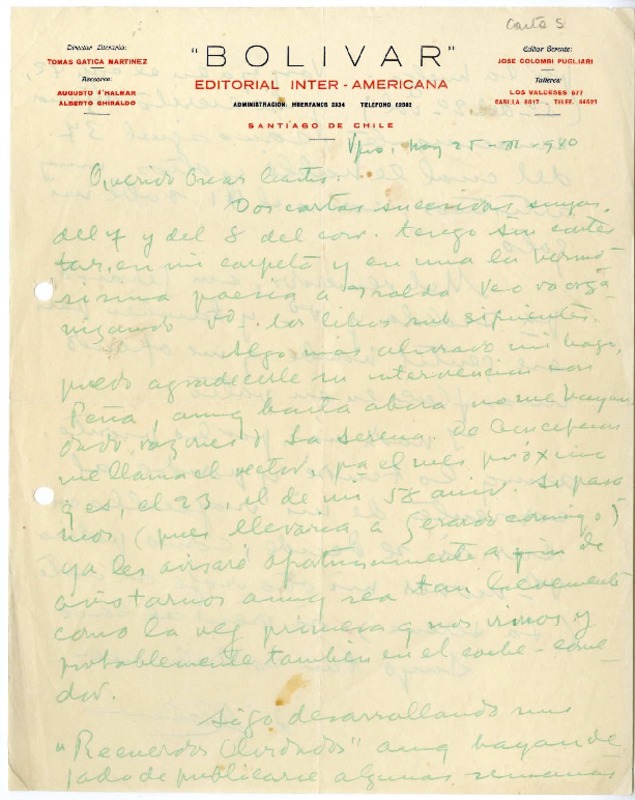 Carta 5
Director Literario:
TOMAS GATICA MARTINEZ
Asesores:
AUGUSTO d'HALMAR
ALBERTO GHIRALDO
"BOLIVAR"
EDITORIAL INTER-AMERICANA
ADMINISTRACION: HUERFANOS 2834 TELEFONO 62882
SANTIAGO DE CHILE
Editor Gerente:
JOSE COLOMBI PUGLIARI
Talleres:
LOS VALDESES 677
CASILLA 6017 - TELEF. 94621
Vpso. hoy 25-III-940
Querido Oscar
Dos cartas sucesivas suyas,
del 7 y del 8 del corr. tengo sin contes
tar, en mi carpeta y en una la hermo
sisima poesia a Veo va orga
nizando vd. los libros subsiguientes.
Algo más aliviado mi lumbago,
puedo agradecerle su intervencion con
Peña, aunq hasta ahora no me hayan
dado razones d La Serena. de Concepcion
me llama el rector, pa el mes próximo
q es, el 23, el de mi 58 aniv. Si pasa
mos (pues llevaria a Gerardo conmigo)
ya les avisaré oportunamente a fin de
avistarnos aunq sea tan brevemente
como la vez primera q nos vimos y
probablemente tambien en el coche-come
dor.
Sigo desarrollando mis
"Recuerdos Olvidados" aunq hayan de
jado de publicarse algunas semanas